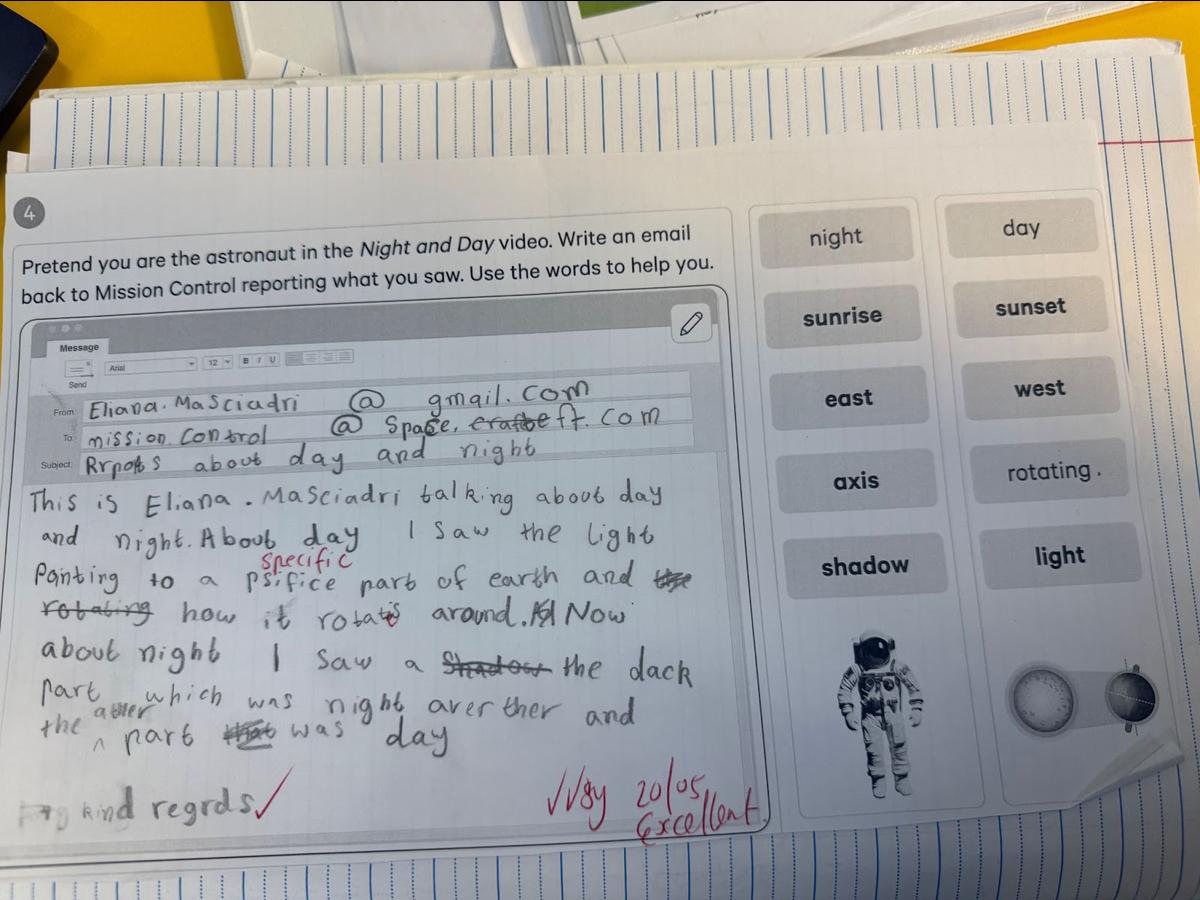 4
Pretend you are the astronaut in the Night and Day video. Write an email
back to Mission Control reporting what you saw. Use the words to help you.
Message
Send
Arial
12
B I U
From: Eliana.Masciadri @ gmail.com
To: mission.Control @ Space. eft.com
Subject: Rrports about day and night
This is Eliana.Masciadri talking about day
and night. About day I saw the light
specific
Pointing to a psifice part of earth and
rotating how it rotats around. Now
about night I saw a Shadow the dack
part which was night aver ther and
the auer part was day
kind regrds
20/05
Excellent
night
day
sunrise
sunset
east
west
axis
rotating.
shadow
light